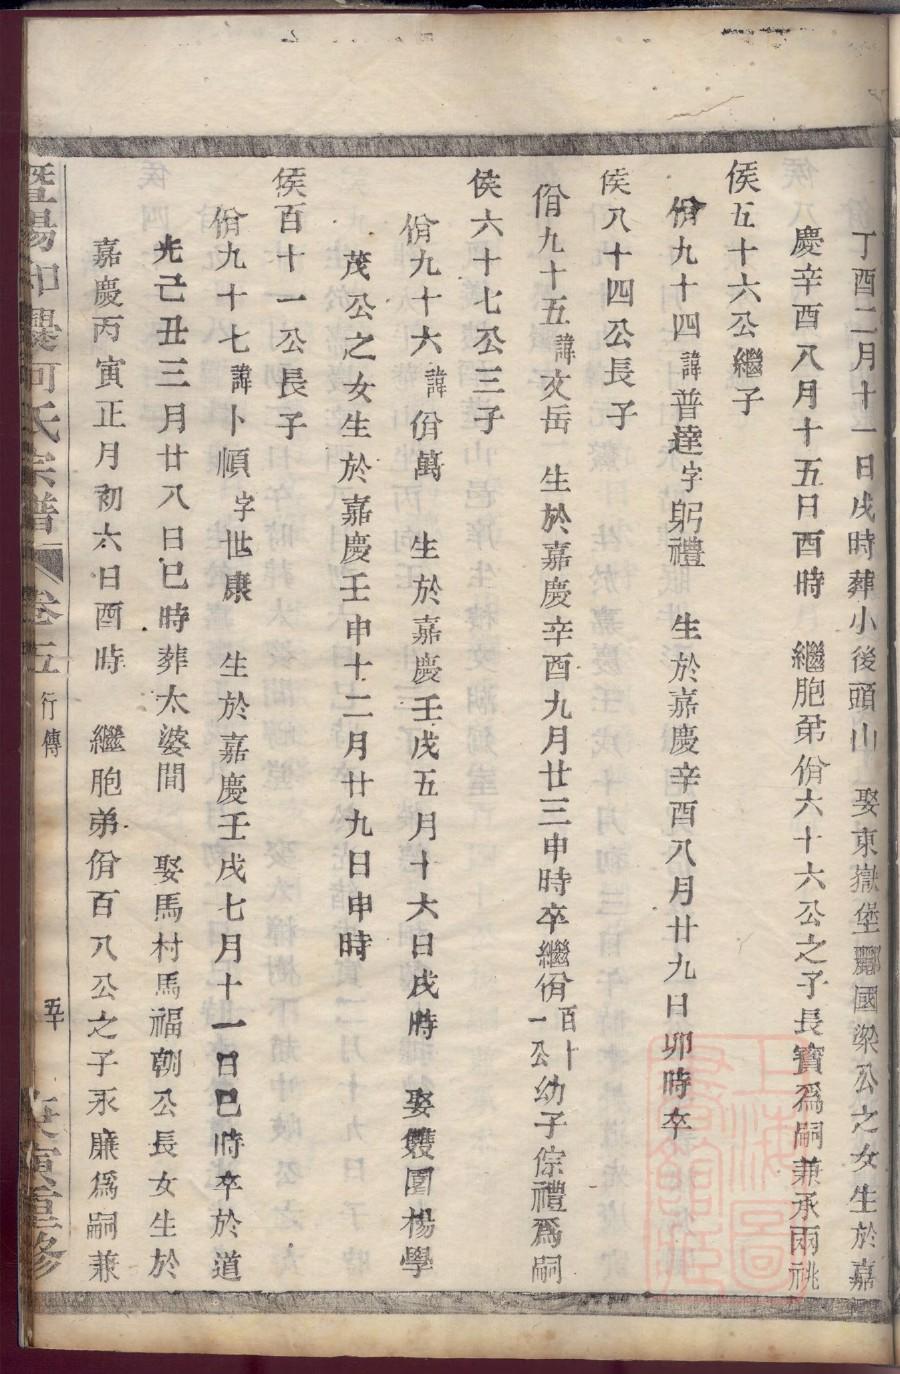 丁酉二月十一日戌時葬小後頭山　娶東嶽堡酈國梁公之女生於嘉
慶辛酉八月十五日酉時　繼胞弟佾六十六公之子長寶爲嗣兼承兩祧
侯五十六公繼子
佾九十四諱普達字躬禮　生於嘉慶辛酉八月廿九日卯時卒
侯八十四公長子
佾九十五諱文岳　生於嘉慶辛酉九月廿三申時卒繼佾百十一公幼子倧禮爲嗣
侯六十七公三子
佾九十六諱佾萬　生於嘉慶壬戌五月十六日戌時　娶雙園楊學
茂公之女生於嘉慶壬申十二月廿九日申時
侯百十一公長子
佾九十七諱卜順字世康　生於嘉慶壬戌七月十一日巳時卒於道
光己丑三月廿八日巳時葬太婆間　娶馬村馬福朝公長女生於
嘉慶丙寅正月初六日酉時　繼胞弟佾百八公之子永廉爲嗣兼
暨陽何氏宗譜　卷五　行傳　五十　重修
上海圖書館藏